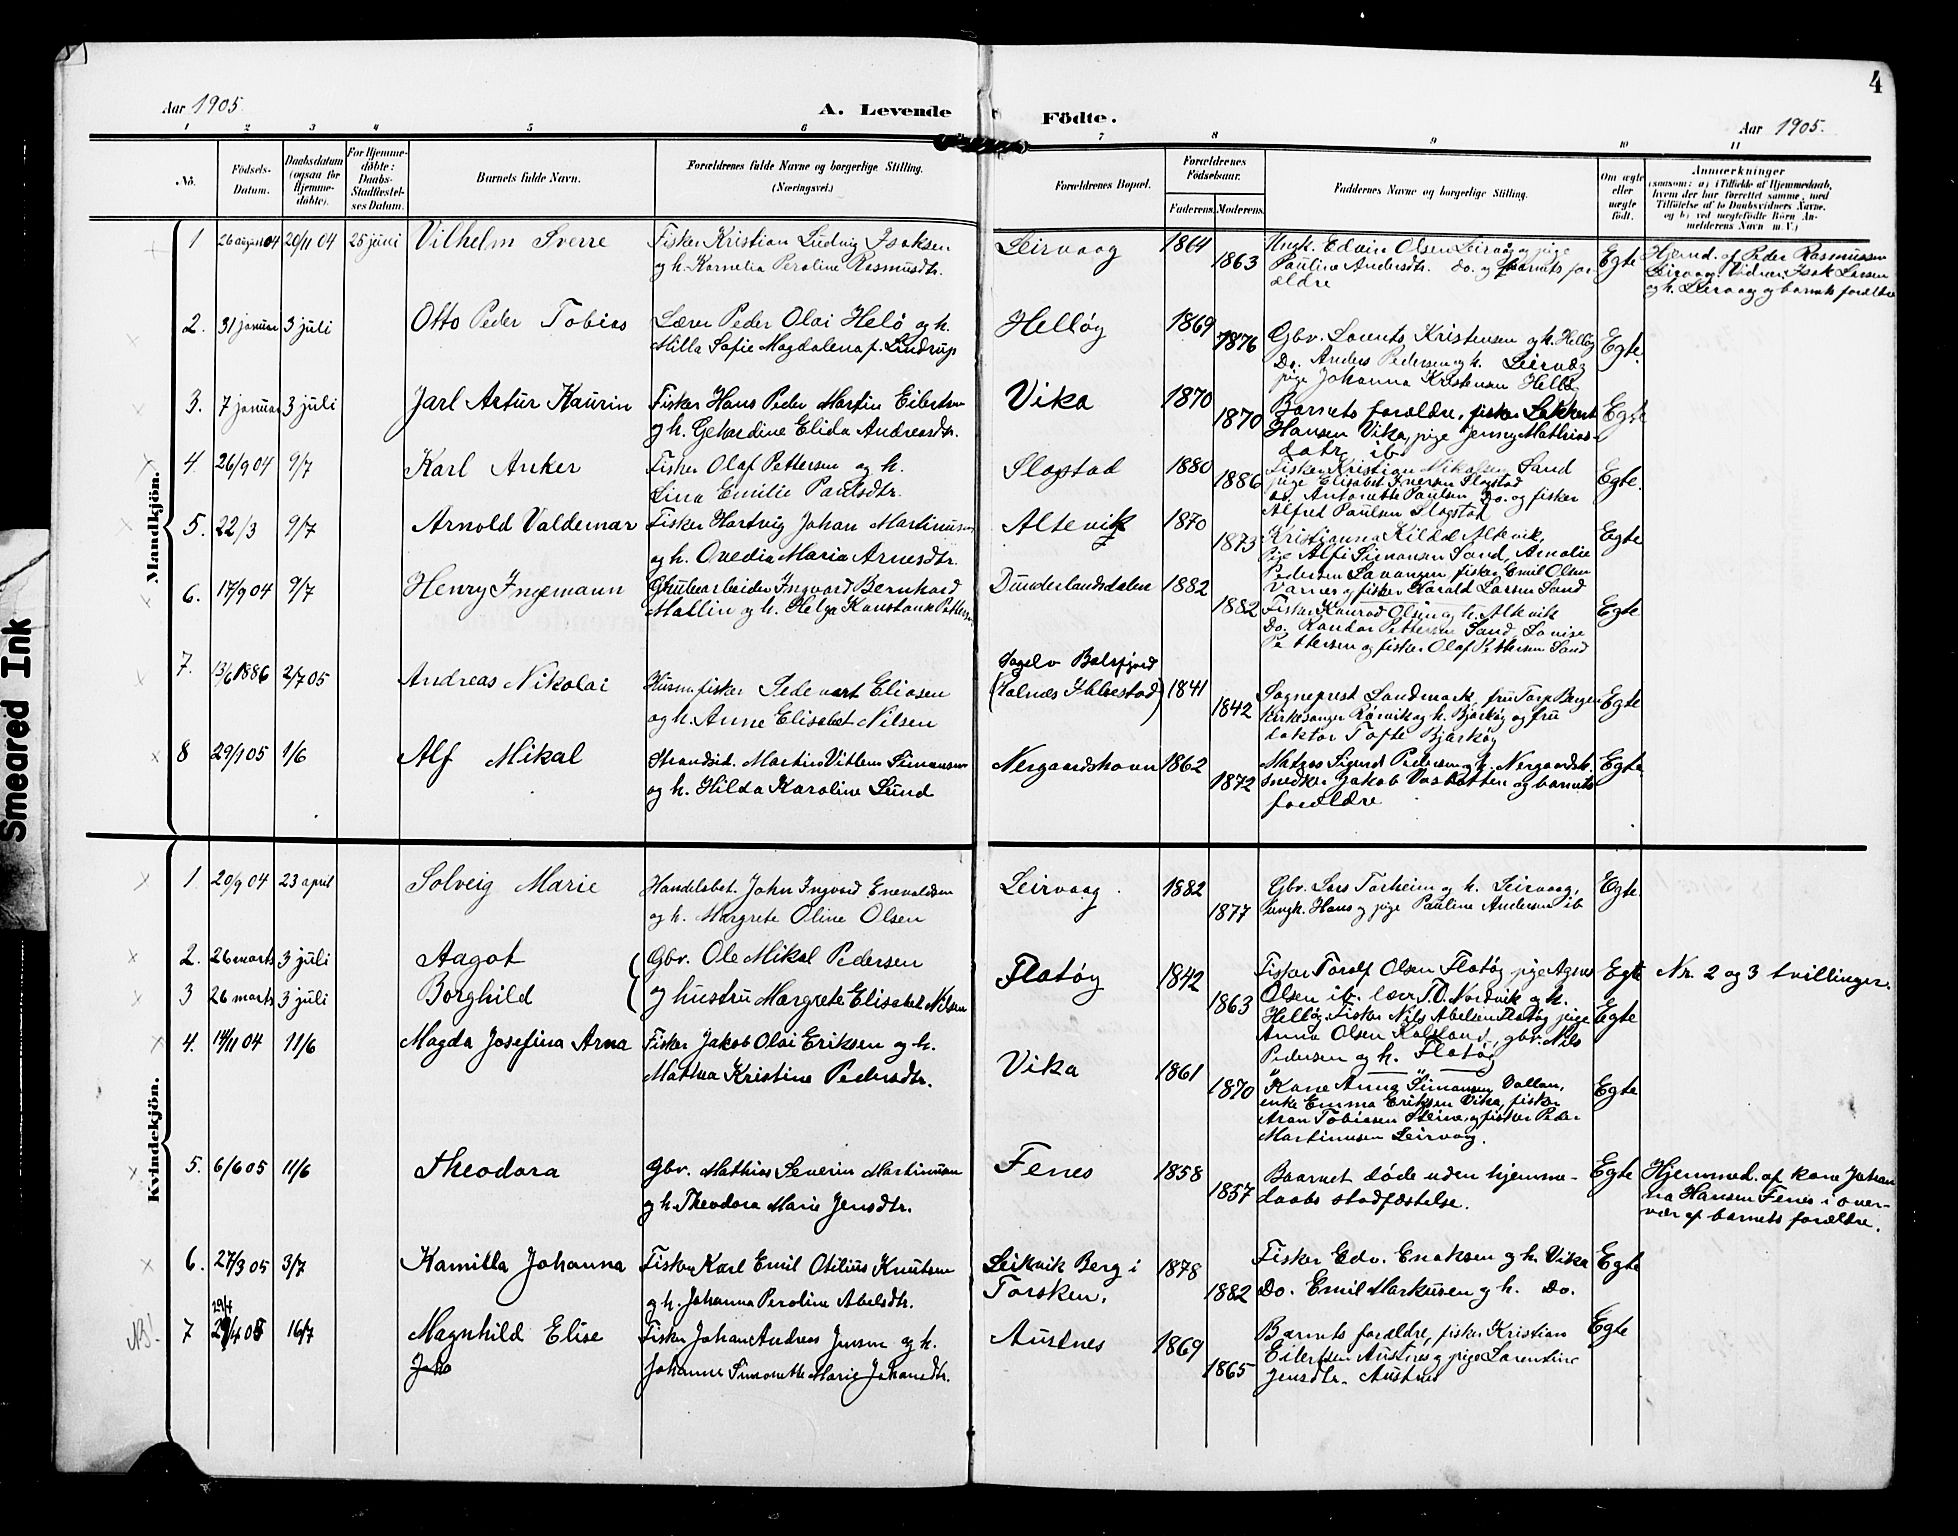 4
Aar 1905.
A. Levende Födte.
Aar 1905.
1 2 3 4 5 6 7 8 9 10 11
Nô.
Födsels-Datum.
Daabsdatum (ogsaa for Hjemme-döbte).
For Hjemme-döbte: Daabs-Stadfæstel-ses Datum.
Barnets fulde Navn.
Forældrenes fulde Navne og borgerlige Stilling. (Næringsvei.)
Forældrenes Bopæl.
Forældrenes Födselsaar.
Faderens. Moderens.
Faddernes Navne og borgerlige Stilling.
Om ægte eller uægte födt.
Anmærkninger
(saasom: a) i Tilfælde af Hjemmedaab, hvem der har forrettet samme, med Tilföielse af to Daabsvidners Navne, og b) ved uægtefödte Börn An-melderens Navn m. V.)
Mandkjön.
1 26 august 04 20/11 04 25 juni Vilhelm Sverre Fisker Kristian Ludvig Isaksen Leirvaag 1864 Ungk. Edvin Olsen Leirvaag og pige Egte Hjemd. af Peder Rasmussen
og h. Kornelia Peroline Rasmusdtr. 1863 Pauline Andersdtr. do. og barnets for- Leirvaag. Vidner Isak Larsen
ældre og h. Leirvaag og barnets forældre
2. 31 januar 3 juli Otto Peder Tobias Lærer Peder Olai Helø og h. Helløy 1869 Gbr. Lorents Kristensen og h. Helløy Egte.
Milla Sofie Magdalena f. Lindrup 1876 Do. Anders Pedersen og h. Leirvåg
pige Johanna Kristensen Helløy
3. 7 januar 3 juli Jarl Artur Kaurin Fisker Hans Peder Martin Eilertsen Vika 1870 Barnets forældre, fisker Egte
og h. Gehardine Elida Andreasdtr. 1870 Hansen Vika, pige Jenny Mathias-
datr. ib.
4. 26/9 04 9/7 Karl Anker Fisker Olaf Pettersen og h. Slogstad 1880 Fisker Kristian Nikolsen Sand Egte.
Lina Emilie Paulsdtr. 1886 pige Elisabet Iversen Slogstad
og Antonette Paulsen Do. og fisker
Alfred Paulsen Slogstad
5. 22/3 9/7 Arnold Valdemar Fisker Hartvig Johan Martinusen Altevik 1870 Kristianna Kildal Altevik, Egte
og h. Ovedia Maria Arnesdtr. 1873 pige Alfi Simonsen Sand, Amalie
Pedersen fisker Emil Olsen
Varnes og fisker Harald Larsen Sand
6. 17/9 04 9/7 Henry Ingemann Grubearbeider Ingvard Bernhard Dunderlandsdalen 1882
Mallin og h. Helga Konstanse 1882 Fisker Konrad Olsen og h. Altevik Egte
Do. Randor Pettersen Sand, Lovise
Pettersen og fisker Olaf Pettersen Sand
7. 13/6 1886 2/7 05 Andreas Nikolai Husm. fisker Eliasen Sagelv Balsfjord
(Tolnæs Ibbestad) 1841 Sogneprest Landmark, fru Torp Bergen Egte
og h. Anne Elisabet Nilsen 1842 kirkesanger Rørvik og h. Bjarkøy og fru
doktor Tofte Bjarkøy
8 29/1 05 1/6 Alf Mikal Strandsit. Martin Villem Simonsen Nergaardshavn 1862 Pedersen og h. Nergaardsh. Egte
og h. Hilda Karoline Lund 1872 snedker Jakob og barnets
forældre
Kvindekjön.
1 20/9 04 23 april Solveig Marie Handelsbet. John Ingvard Enevoldsen Leirvaag. 1882 Gbr. Lars Torheim og h. Leirvaag, Egte.
og h. Margrete Oline Olsen 1877 Ungk. Hans og pige Pauline Andersen ib
2. 26 marts 3 juli Aagot Gbr. Ole Mikal Pedersen Flatøy 1842 Fisker Toralf Olsen Flatøy pige Agnes Egte Nr. 2 og 3 tvillinger.
3 26 marts 3 juli Borghild og hustru Margrete Elisabet Nilsen 1863 Olsen ib. lærer T.O. Nordvik og h. Egte
Helløy Fisker Nils Abelsen Flatøy pige
Anna Olsen, gbr. Nils
Pedersen og h. Flatøy
4. 14/11 04 11/6 Magda Josefina Arna Fisker Jakob Olai Eriksen og h. Vika 1861
Mathea Kristine Pedersdtr. 1870 Kone Anna Simonsen Vollan, Egte
enke Emma Eriksen Vika, fisker
Aron Tobiasen Steine, og fisker Peder
Martinusen Leirvaag.
5. 6/6 05 11/6 Theodora Gbr. Mathias Severin Martinusen Fenes 1858 Baarnet døde uden hjemme- Egte Hjemmed. af kone Johan-
og h. Theodora Marie Jensdtr. 1857 daabs stadfæstelse. na Hansen Fenes i over-
vær af barnets forældre.
6. 27/3 05 3/7 Kamilla Johanna Fisker Karl Emil Otilius Knutsen Leikvik Berg i 1878 Fisker Edv. Enoksen og h. Vika Egte
og h. Johanna Peroline Abelsdtr. Torsken. 1882 Do. Emil Markusen og h. Do.
29/7
NB! 7 2/4 05 16/7 Magnhild Elise Fisker Johan Andreas Jensen og h. Austnes 1869 Barnets forældre, fisker Kristian Egte
Joho Johanne Simonette Marie Johansdtr. 1865 Eilertsen Austnes og pige Sorentine
Jensdtr. Austnes
Smeared Ink